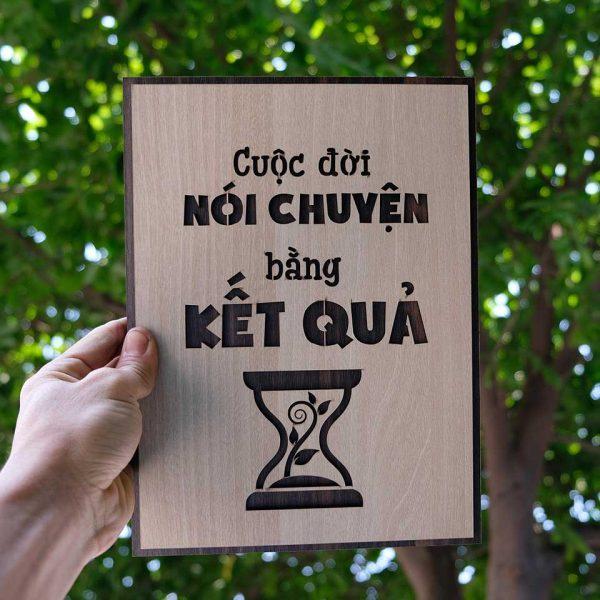 Cuộc đời
NÓI CHUYỆN
bằng
KẾT QUẢ